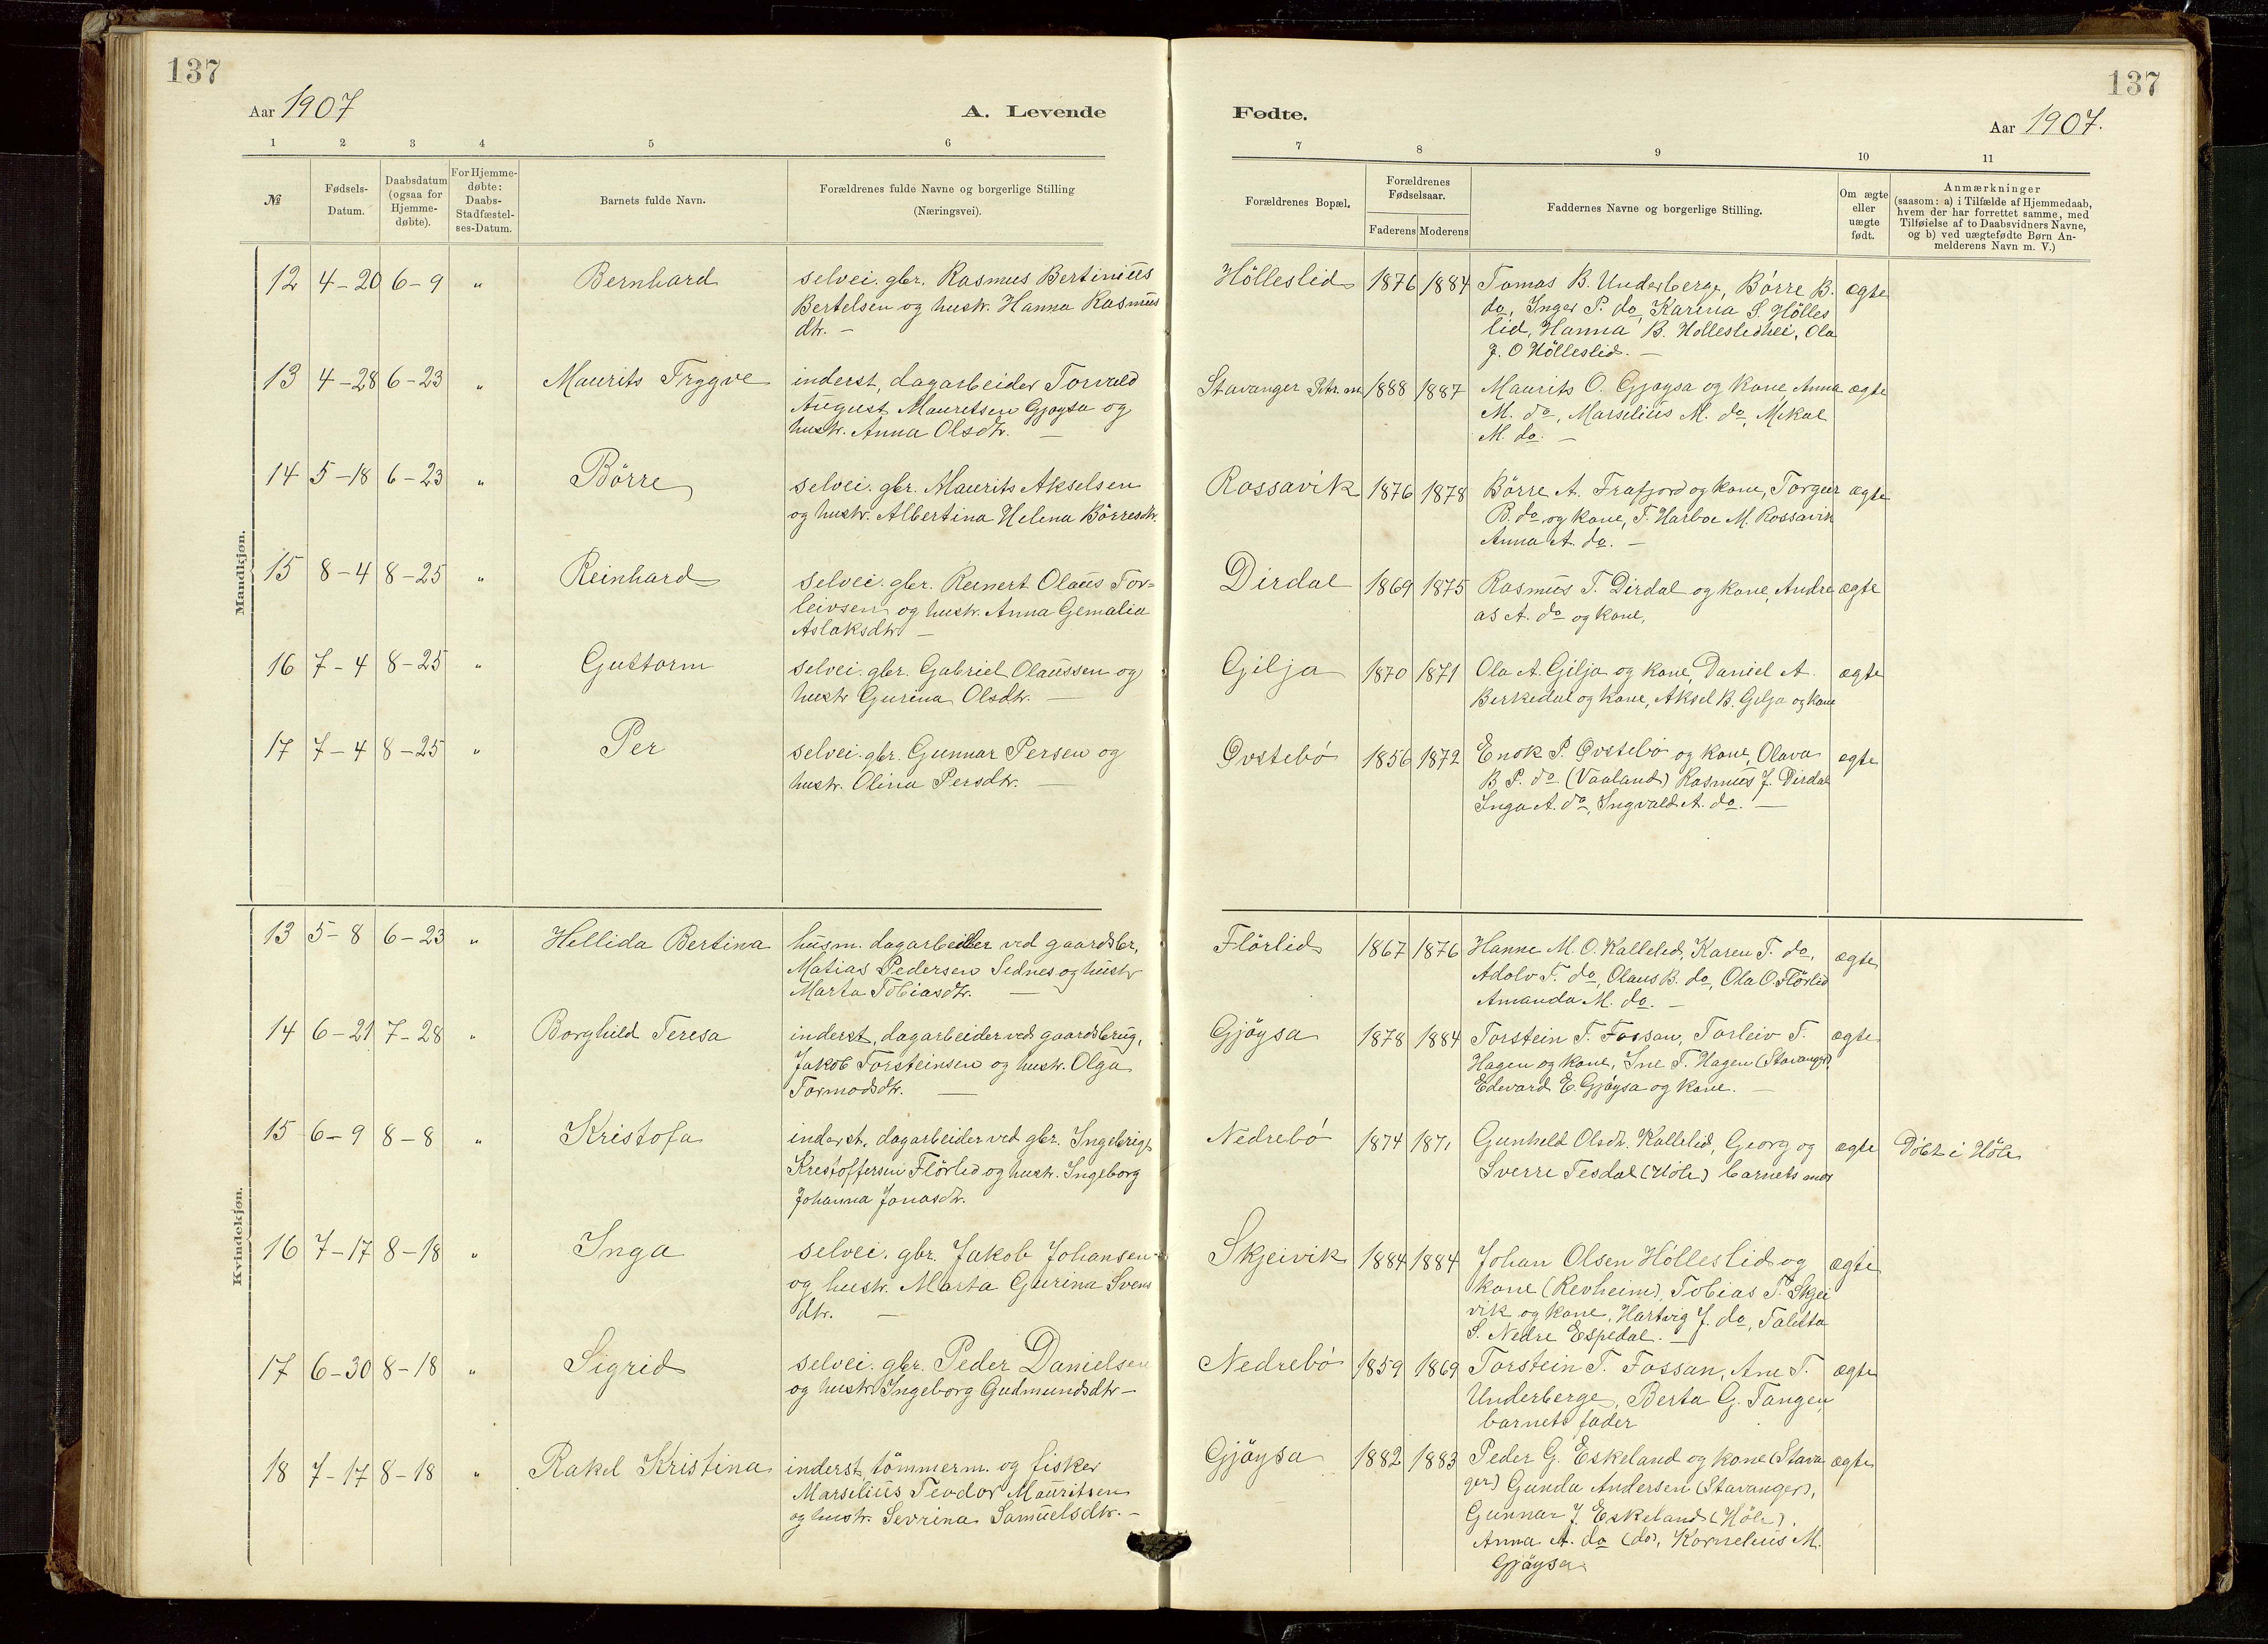 137
Aar 1907
A. Levende
1 2 3 4 5 6
№
Fødsels-
Datum.
Daabsdatum
(ogsaa for
Hjemme-
døbte).
For Hjemme-
døbte:
Daabs-
Stadfæstel-
ses-Datum.
Barnets fulde Navn.
Forældrenes fulde Navne og borgerlige Stilling
(Næringsvei).
Mandkjøn.
12 4-20 6-9 " Bernhard selvei. gbr. Rasmus Bertinius
Bertelsen og hustr. Hanna Rasmus
dtr. —
13 4-28 6-23 " Maurits Trygve inderst, dagarbeider Torvald
August Mauritsen Gjøysa og
hustr. Anna Olsdtr. —
14 5-18 6-23 " Börre selvei. gbr. Maurits Akselsen
og hustr. Albertina Helena Börresdtr.
15 8-4 8-25 " Reinhard selvei. gbr. Reinert Olaus Tor=
leivsen og hustr. Anna Gemalia
Aslaksdtr —
16 7-4 8-25 " Guttorm selvei. gbr. Gabriel Olaussen og
hustr Gurina Olsdtr. —
17 7-4 8-25 " Per selvei. gbr. Gunnar Persen og
hustr. Olina Persdtr. —
Kvindekjøn.
13 5-8 6-23 " Hellida Bertina husm. dagarbeider ved gaardsbr,
Matias Pedersen Sednes og hustr
Marta Tobiasdtr. —
14 6-21 7-28 " Borghild Teresa inderst, dagarbeider ved gaardsbrug,
Jakob Torsteinsen og hustr. Olga
Tormodsdtr. —
15 6-9 8-8 " Kristofa inderst, dagarbeider ved gbr. Ingebrigt
Kristoffersen Flörlid og hustr. Ingeborg
Johanna Jonasdtr.
16 7-17 8-18 " Inga selvei. gbr. Jakob Johansen
og hustr. Marta Gurina Svens
dtr. —
17 6-30 8-18 " Sigrid selvei. gbr. Peder Danielsen
og hustr Ingeborg Gudmundsdtr —
18 7-17 8-18 " Rakel Kristina inderst, tömmerm. og fisker
Marselius Teodor Mauritsen
og hustr. Sevrina Samuelsdtr. —
137
Fødte.
Aar 1907.
7 8 9 10 11
Forældrenes Bopæl.
Forældrenes
Fødselsaar.
Faderens Moderens
Faddernes Navne og borgerlige Stilling.
Om ægte
eller
uægte
født.
Anmærkninger
(saasom: a) i Tilfælde af Hjemmedaab,
hvem der har forrettet samme, med
Tilføielse af to Daabsvidners Navne,
og b) ved uægtefødte Børn An-
melderens Navn m. V.)
Hölleslid 1876 1884 Tomas B. Underberge, Börre B. ægte
do, Inger P. do, Karina S. Hölles
lid, Hanna B. Hölleslidhei, Ola
J. O Hölleslid. —
Stavanger 1888 1887 Maurits O. Gjøysa og kone, Anna ægte
M. do, Marselius M. do, Mikal
M. do. —
Rossavik 1876 1878 Börre A. Frafjord og kone, Torger ægte
B. do og kone, T. Harboe M. Rossavik
Anna A. do. —
Dirdal 1869 1875 Rasmus T. Dirdal og kone, Andre ægte
as A. do og kone,
Gilja 1870 1871 Ola A. Gilja og kone, Daniel A. ægte
Berkedal og kone, Aksel B. Gilja og kone
Øvstebö 1856 1872 Enok P. Øvstebö og kone, Olava ægte
B P. do (Vaaland) Rasmus J. Dirdal
Inga A. do, Ingvald A. do. —
Flörlid 1867 1876 Hanne M. O. Kallelid, Karen T. do, ægte
Adolv T. do, Olaus B. do, Ola O. Flörlid
Amanda M. do. —
Gjöysa 1878 1884 Torstein T. Fossan, Torleiv T. ægte
Hagen og kone, Ine T. Hagen (Stavanger),
Edevard E. Gjöysa og kone. —
Nedrebö 1874 1871 Gunhild Olsdtr. Kallelid, Georg og ægte Döbt i Höle
Sverre Tesdal (Höle) barnets mor
Skjeivik 1884 1884 Johan Olsen Hölleslid og ægte
kone (Revheim), Tobias T. Skjei
vik og kone, Hartvig J. do, Taletta
S. Nedre Espedal. —
Nedrebö 1859 1869 Torstein T. Fossan, Ane T. ægte
Underberge, Berta G. Tangen
barnets fader
Gjöysa 1882 1883 Peder G. Eskeland og kone (Stavan ægte
ger) Gunda Andersen (Stavanger),
Gunnar J. Eskeland (Höle).
Anna A. do (do), Kornelius M.
Gjöysa